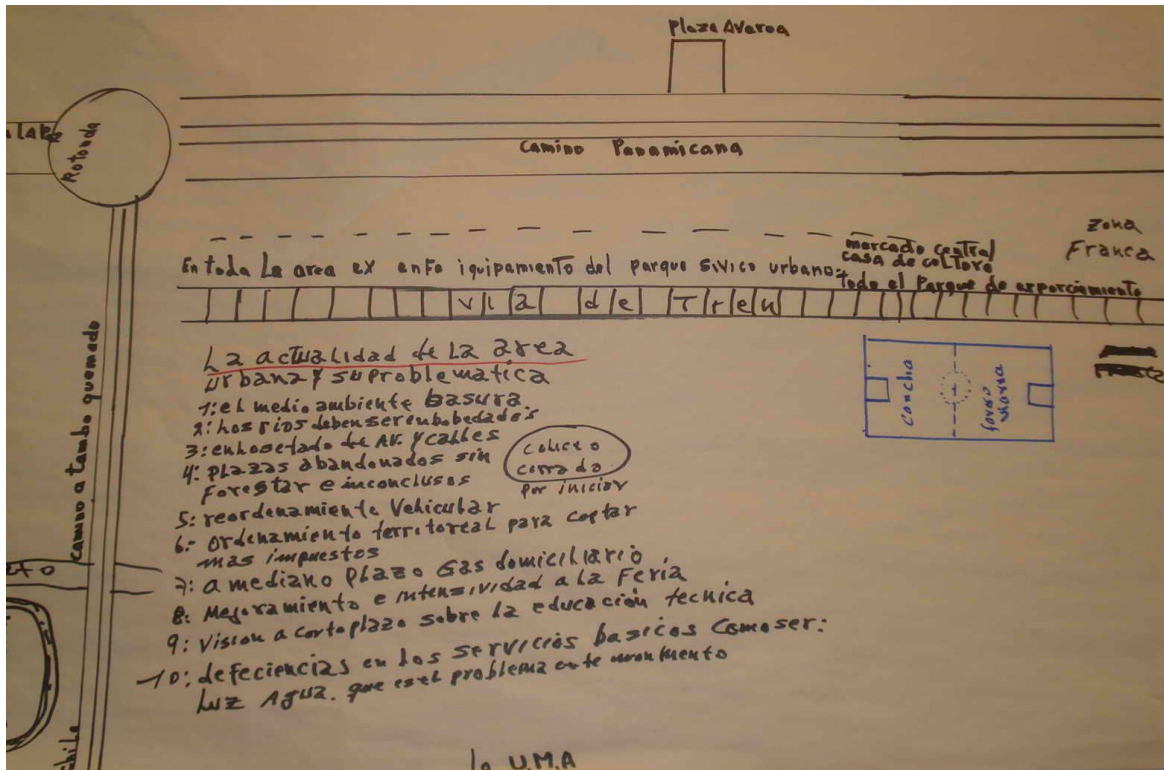 Plaza Avaroa
Rotonda
Camino Panamicana
Zona
Franca
mercado central
casa de coltora
En toda La area ex enfe iquipamiento del parque sivico urbano:
todo el Parque de esporciamiento
via de Tren
camino a tambo quemado
La actualidad de La area
urbana y su problematica
1: el medio ambiente basura
2: Los rios deben ser enbobedados
3: enlosetado de AV. y calles
4: plazas abandonados sin
Forestar e inconclusos
coliceo
cerrado
por iniciar
5: reordenamiento Vehicular
6.- Ordenamiento territoreal para captar
mas impuestos
7: a mediano plazo Gas domiciliario
8: Mejoramiento e intensividad a la Feria
9: Vision a corto plazo sobre la educación tecnica
10: defeciencias en los servicios basicos Como ser:
Luz Agua. que es el problema
cancha
la U.M.A